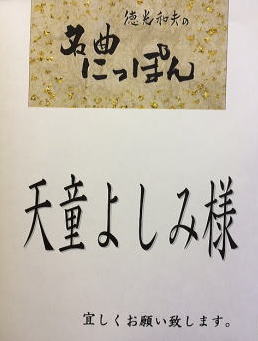 徳光和夫の
名曲
にっぽん
天童よしみ様
宜しくお願い致します。